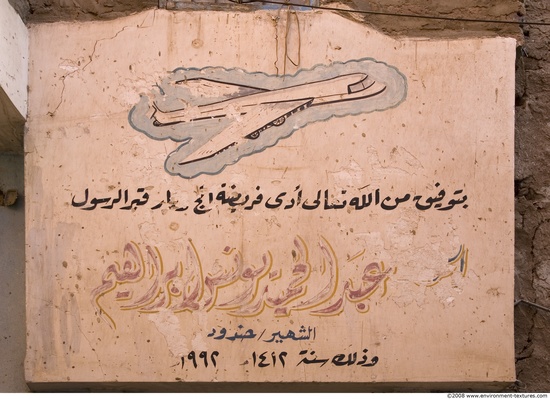 بتوفيق من الله تعالى أدى فريضة الحج وزار قبر الرسول
الحاج عبد الحميد يونس إبراهيم
الشهير / حندود
وذلك سنة ١٤١٢ ١٩٩٢م
©2008 www.environment-textures.com